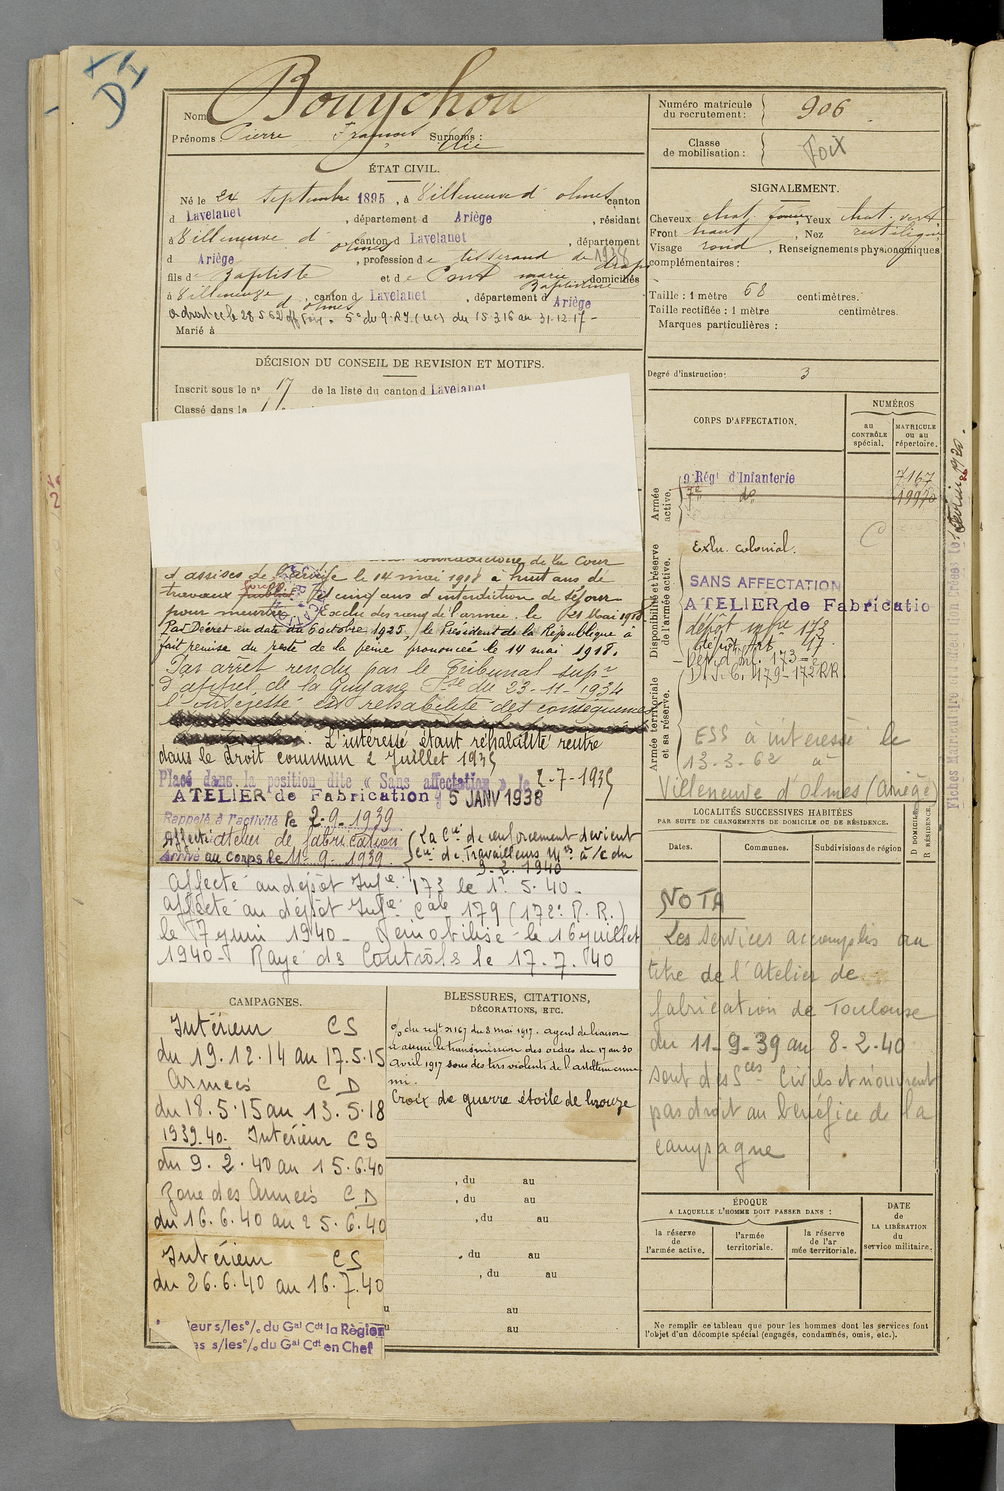 DI
Nom Bouychou
Prénoms : Pierre François Surnoms : Elie
Numéro matricule du recrutement : 906
Classe de mobilisation : Foix
ÉTAT CIVIL.
Né le 24 septembre 1895, à Villeneuve d'olmes canton
d Lavelanet, département d Ariège, résidant
à Villeneuve d'olmes canton d Lavelanet, département
d Ariège, profession de tisserand de drap 1938
fils de Baptiste et de marie Baptistine domiciliés
à Villeneuve d'olmes, canton d Lavelanet, département d Ariège
5e du 9 R.I. (uc) du 15 3 16 au 31.12.17 -
Marié à
SIGNALEMENT.
Cheveux chat. foncé Yeux chat. vert
Front haut, Nez rectiligne
Visage rond, Renseignements physionomiques
complémentaires :
Taille : 1 mètre 68 centimètres.
Taille rectifiée : 1 mètre centimètres.
Marques particulières :
Degré d'instruction : 3
DÉCISION DU CONSEIL DE REVISION ET MOTIFS.
Inscrit sous le n° 17 de la liste du canton d Lavelanet
Classé dans la
de la Cour
d'assises de le 14 mai 1918 à huit ans de
travaux forcés et cinq ans d'interdiction de séjour
pour meurtre. Exclu des rangs de l'armée le 21 Mai 1918
Par Décret en date du 6 octobre 1925, le Président de la République a
fait remise du reste de la peine prononcée le 14 mai 1918.
Par arret rendu par le Tribunal supr
d'appel de la Guyane Fse du 23-11-1934
l'interessé est rehabilité des consequences
. L'intéressé étant réhabilité rentre
dans le droit commun 2 Juillet 1935
Placé dans la position dite « Sans affectation » le 2-7-1935
ATELIER de Fabrication 5 JANV 1938
Rappelé à l'activité le 2-9-1939
Affecté atelier de fabrication
Arrivé au corps le 11-9-1939
La Cie de renforcement devient
Cie de Travailleurs Mres à/c du
9-2-1940
Affecté au dépôt Infie 173 le 1r 5-40-
Affecté au dépôt Infie Cale 179 (172e R.R.)
le 7 juin 1940- Démobilisé le 16 juillet
1940- Rayé des Contrôls le 17-7-40
CORPS D'AFFECTATION.
NUMÉROS
au CONTRÔLE spécial.
MATRICULE ou au répertoire.
Armée active.
9e Régt d'Infanterie 7167
7e do
Disponibilité et réserve de l'armée active.
Exclu. colonial.
SANS AFFECTATION
ATELIER de Fabricatio
dépôt infie 173
Armée territoriale et sa réserve.
D.I.C. 179-172 RR
ESS à intéressé le
13-3-62 à
Villeneuve d'olmes (Ariège)
LOCALITÉS SUCCESSIVES HABITÉES
PAR SUITE DE CHANGEMENTS DE DOMICILE OU DE RÉSIDENCE.
Dates.
Communes.
Subdivisions de région
D DOMICILE.
R RÉSIDENCE.
NOTA
Les services accomplis au
titre de l'Atelier de
fabrication de Toulouse
du 11-9-39 au 8-2-40
sont des Sces Civils et n'ouvrent
pas droit au bénéfice de la
campagne
CAMPAGNES.
Intérieur CS
du 19.12.14 au 17.5.15
Armées CD
du 18.5.15 au 13.5.18
1939.40. Intérieur CS
du 9.2.40 au 15.6.40
Zone des Armées CD
du 16.6.40 au 25.6.40
Intérieur CS
du 26.6.40 au 16.7.40
eur s/les °/o du Gal Cdt la Région
es s/les °/o du Gal Cdt en Chef
BLESSURES, CITATIONS,
DÉCORATIONS, ETC.
O/ du regt n 167 du 8 mai 1917. agent de liaison
a assuré la transmission des ordres du 17 au 30
Avril 1917 sous des tirs violents de l'artillerie enne
mi.
Croix de guerre étoile de bronze
, du au
, du au
, du au
, du au
, du au
au
au
ÉPOQUE
A LAQUELLE L'HOMME DOIT PASSER DANS :
la réserve de l'armée active.
l'armée territoriale.
la réserve de l'armée territoriale.
DATE de LA LIBÉRATION du service militaire.
Ne remplir ce tableau que pour les hommes dont les services font
l'objet d'un décompte spécial (engagés, condamnés, omis, etc.).